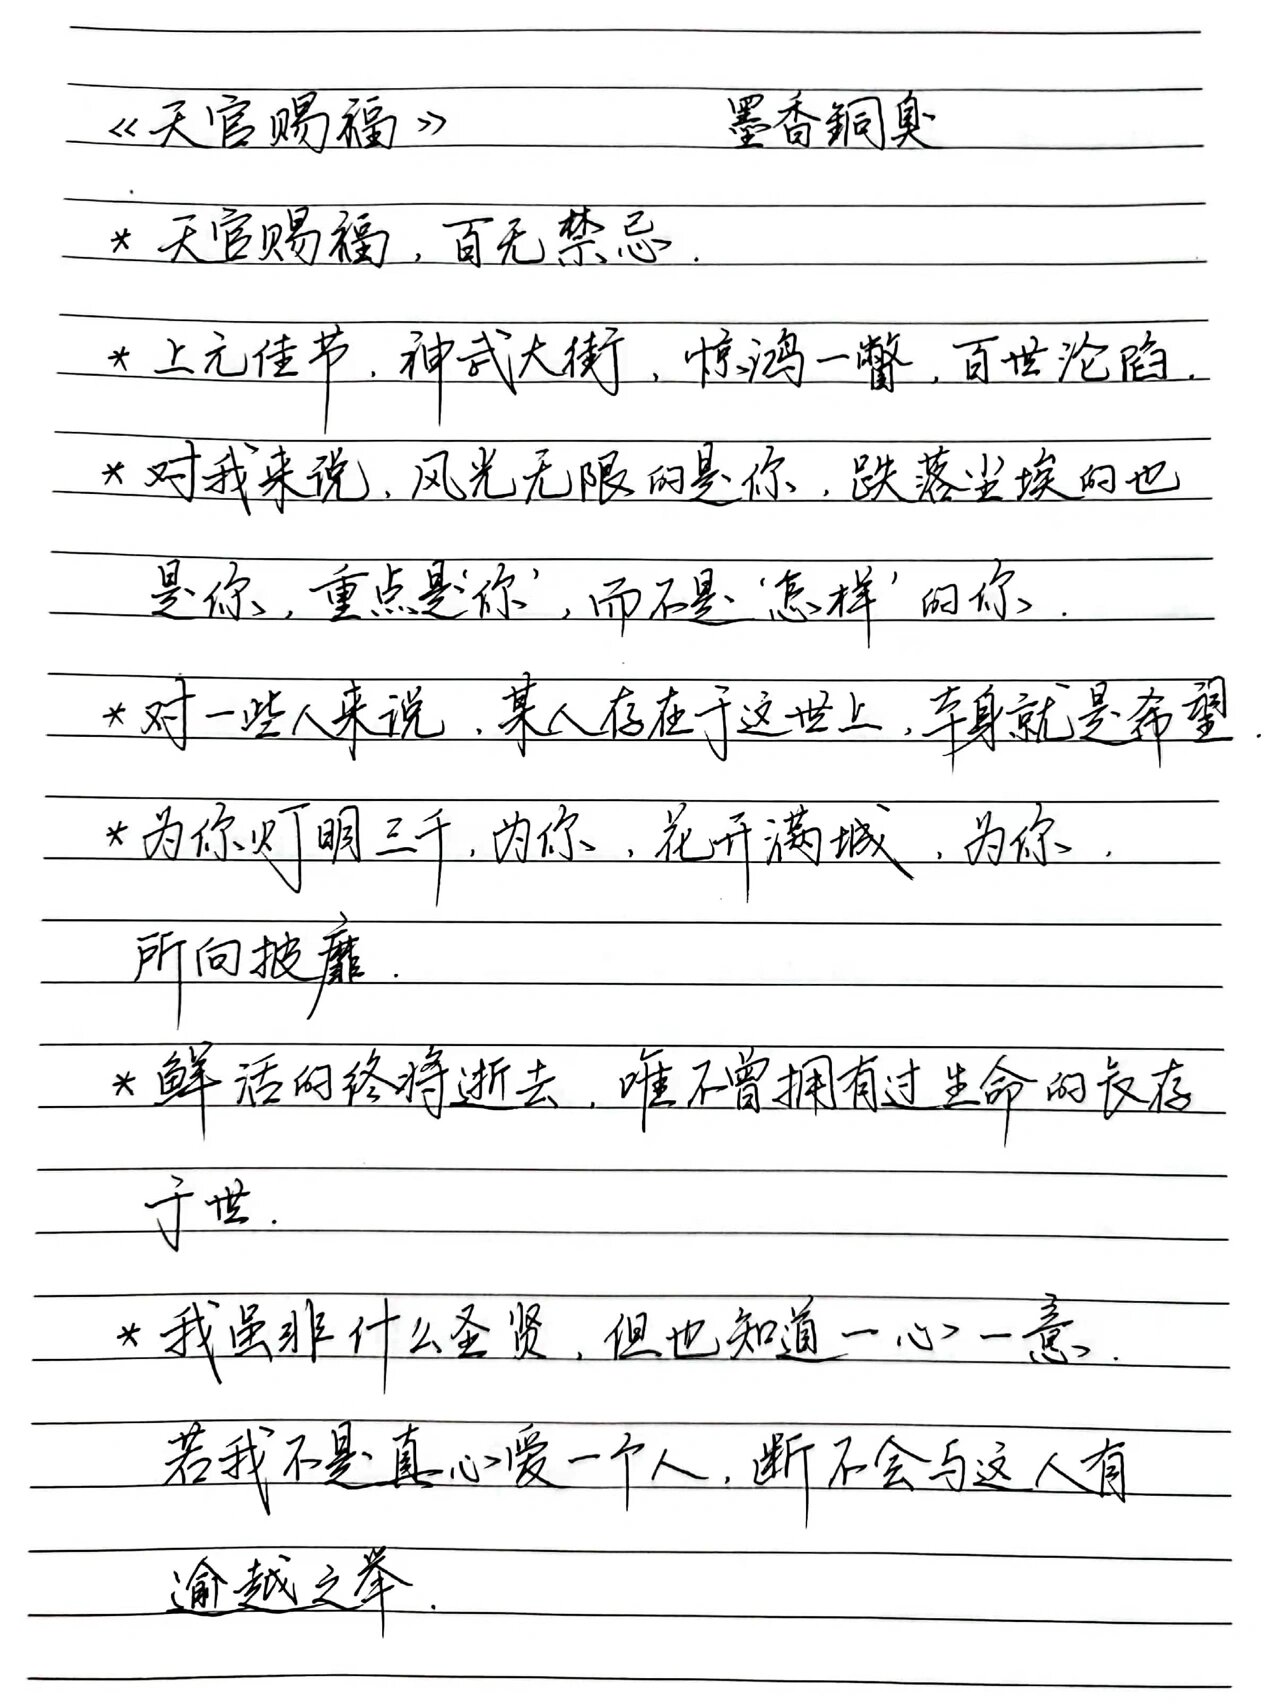 《天官赐福》 墨香銅臭
* 天官赐福，百无禁忌.
* 上元佳节，神武大街，惊鸿一瞥，百世沦陷.
* 对我来说，风光无限的是你，跌落尘埃的也
是你，重点是‘你’，而不是‘怎样’的你.
* 对一些人来说，某人存在于这世上，本身就是希望.
* 为你灯明三千，为你，花开满城，为你，
所向披靡.
* 鲜活的终将逝去，唯不曾拥有过生命的长存
于世.
* 我虽非什么圣贤，但也知道一心一意.
若我不是真心爱一个人，断不会与这人有
逾越之举.